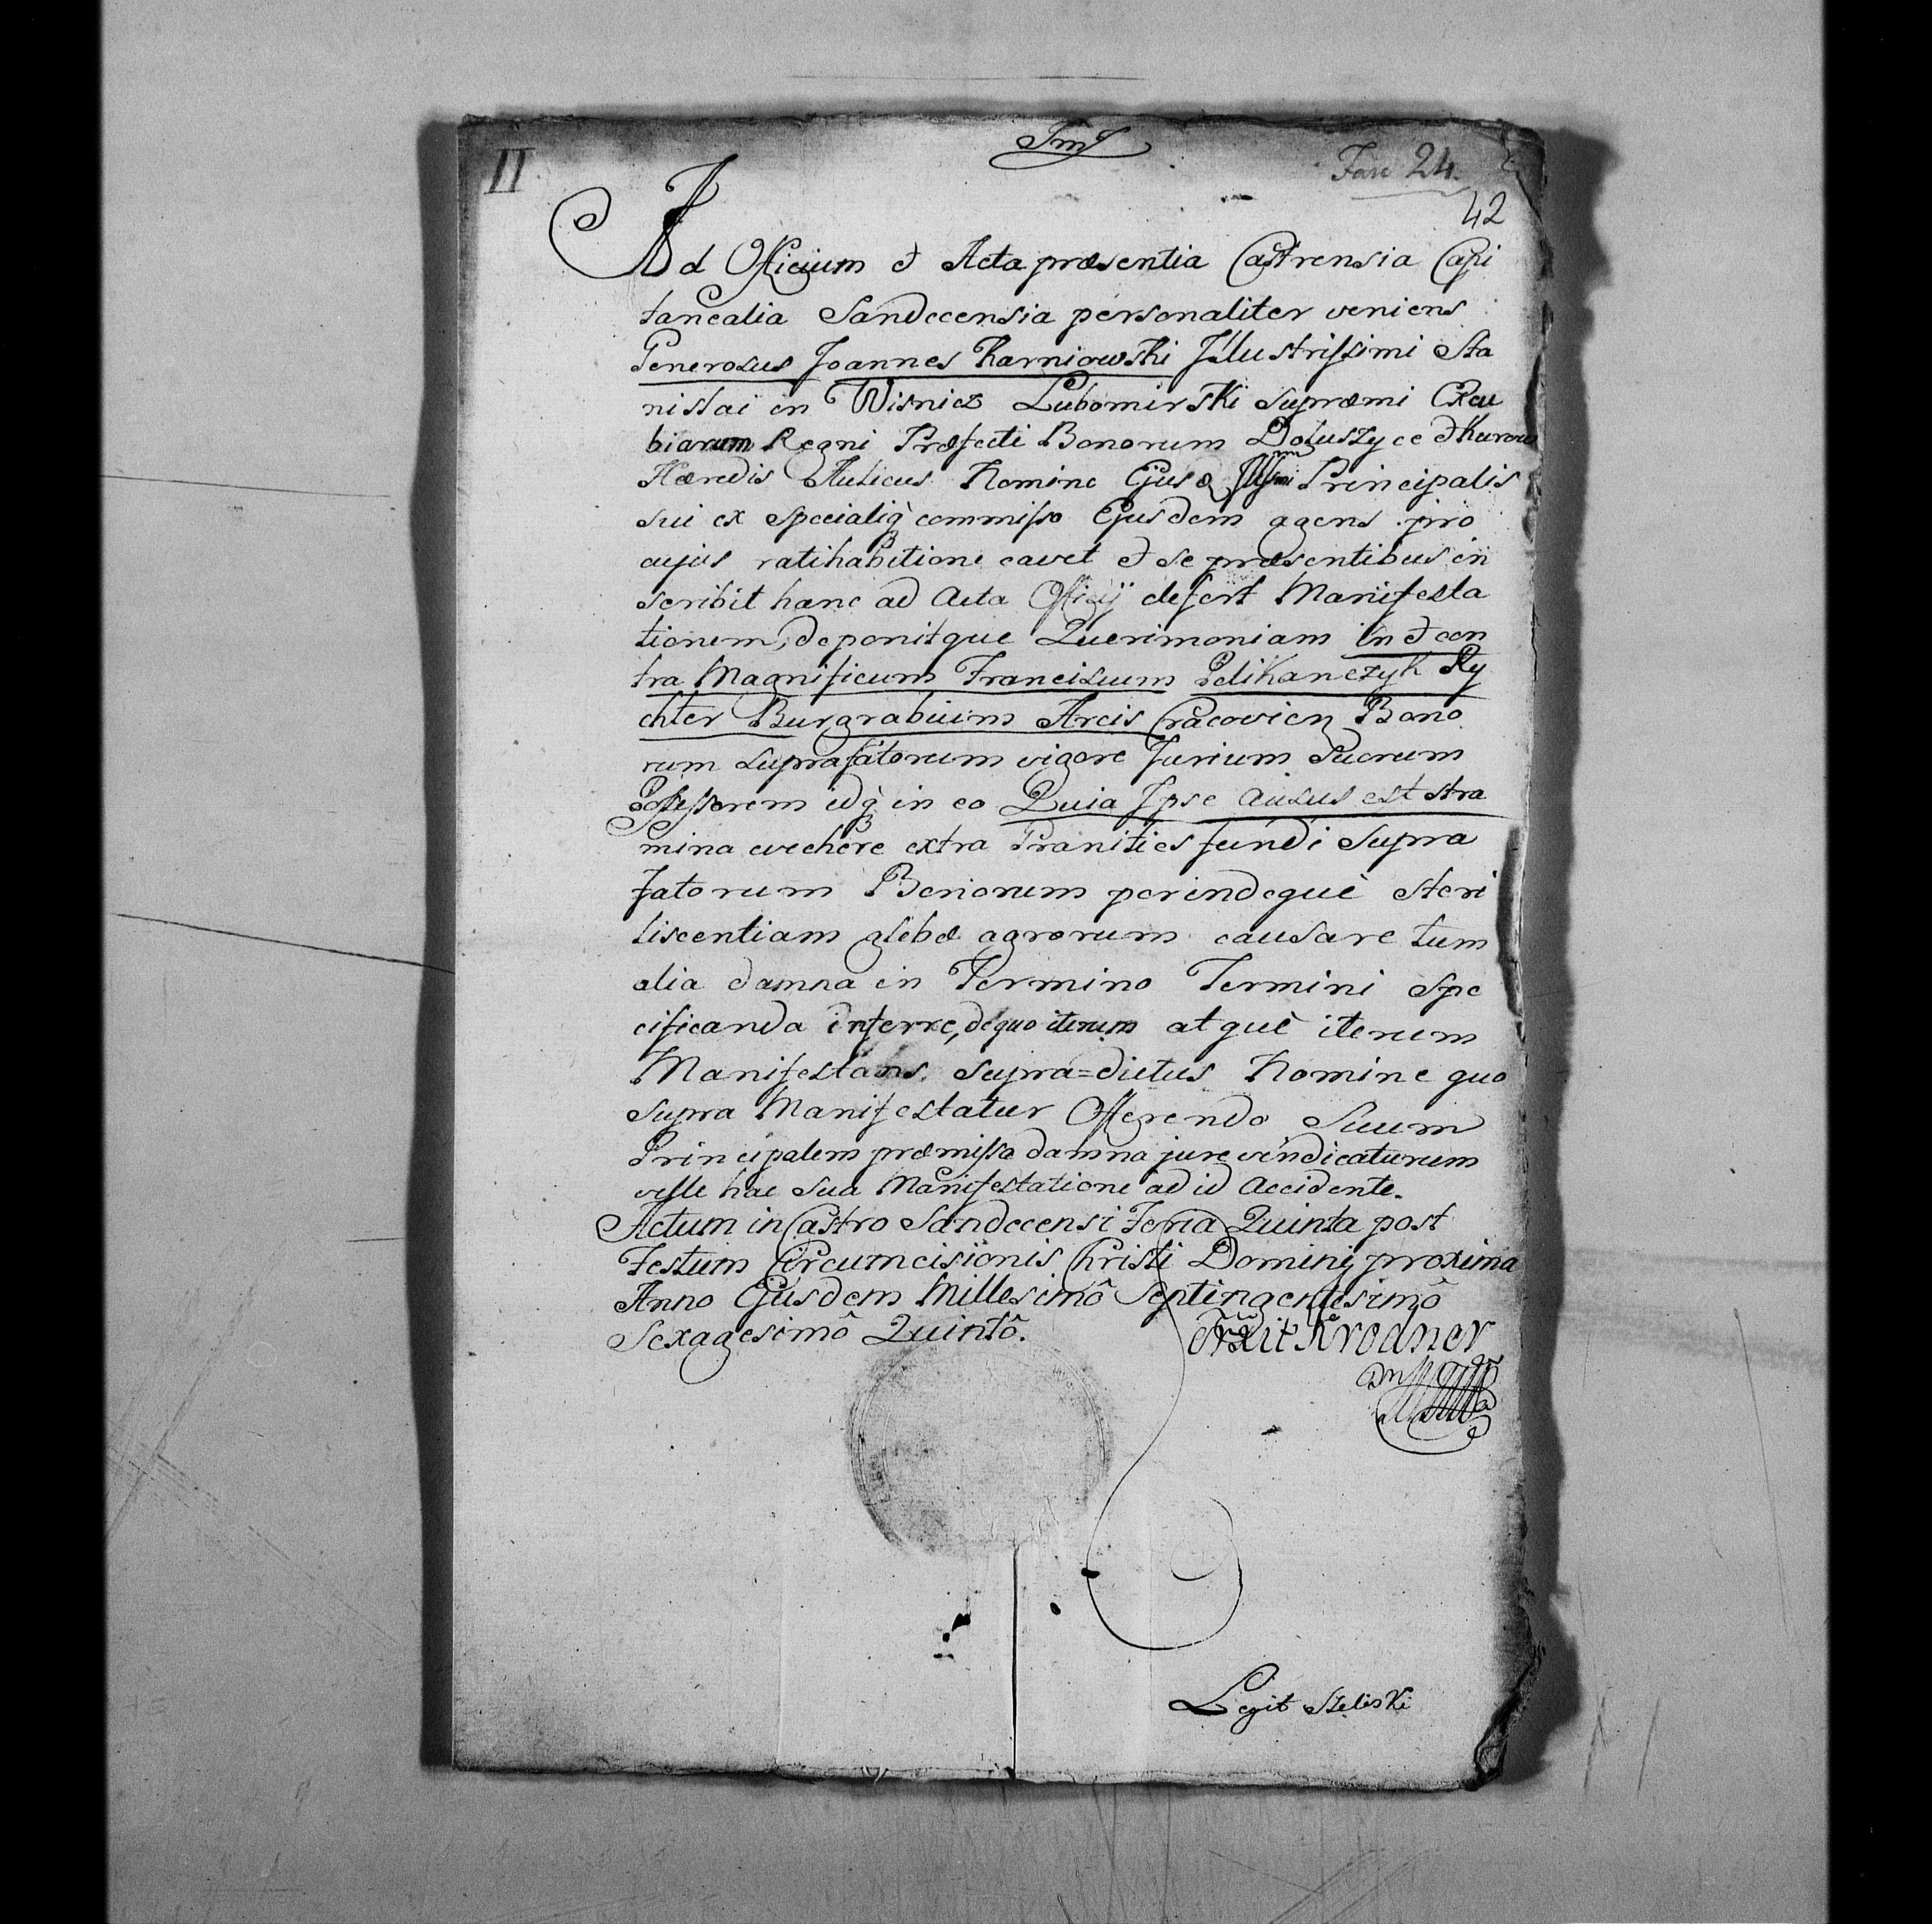 II
Fasc 24.
42
Ad Officium et Acta præsentia Castrensia Capi
tanealia Sandecensia personaliter veniens
Generosus Joannes Karniowski Jllustrissimi Sta
nislai in Wisnicz Lubomirski Supræmi Excu
biarum Regni Præfecti Bonorum Doluszyce et Kurow
Hæredis Aulicus Nomine Ejusd Jllsmi Principalis
sui ex Specialiq commisso Ejusdem agens pro
cujus ratihabitione cavet et se præsentibus in
scribit hanc ad Acta Officij defert Manifesta
tionem, deponitque Querimoniam in et con
tra Magnificum Franciscum Pelikanczyk Ry
chter Burgrabium Arcis Cracovien Bono
rum suprafatorum vigore Jurium suorum
Possessorem idq in eo Quia Jpse ausus est stra
mina evehere extra Granities fundi supra
fatorum Bonorum perindequè steri
liscentiam glebæ agrorum causare tum
alia damna in Termino Termini spe
cificanda inferre, de quo iterum atquè iterum
Manifestans supra=dictus Nomine quo
supra Manifestatur Offerendo Suum
Principalem præmissa damna jure vindicaturum
velle hac sua Manifestatione ad id Accidente.
Actum in Castro Sandecensi Feria Quinta post
Festum Circumcisionis Christi Dominj proxima
Anno Ejusdem Millesimô Septingentesimô
Sexagesimô Quintô.
Krodner
Legit Szeliski